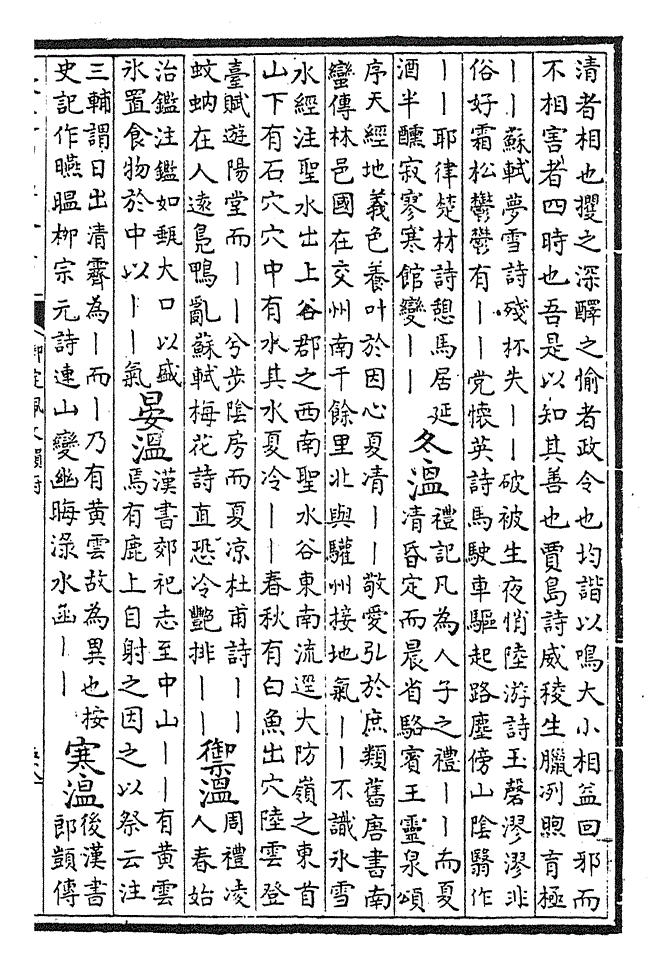 清者相也攖之深醳之愉者政令也均諧以鳴大小相益回邪而
不相害者四時也吾是以知其善也賈島詩威稜生臘冽煦育極
丨丨蘇軾夢雪詩殘杯失丨丨破被生夜悄陸游詩玉磬漻漻非
俗好霜松鬱鬱有丨丨党懷英詩馬駛車驅起路塵傍山陰翳作
丨丨耶律楚材詩憩馬居延
酒半醺寂寥寒館變丨丨
冬溫
禮記凡為人子之禮丨丨而夏
清昏定而晨省駱賓王靈泉頌
序天經地義色養叶於因心夏清丨丨敬愛弘於庶類舊唐書南
蠻傳林邑國在交州南千餘里北與驩州接地氣丨丨不識氷雪
水經注聖水出上谷郡之西南聖水谷東南流逕大防嶺之東首
山下有石穴穴中有水其水夏冷丨丨春秋有白魚出穴陸雲登
臺賦遊陽堂而丨丨兮步陰房而夏凉杜甫詩丨丨
蚊蚋在人遠鳧鴨亂蘇軾梅花詩直恐冷艷排丨丨
禦溫
周禮凌
人春始
治鑑注鑑如甄大口以盛
氷置食物於中以丨丨氣
晏溫
漢書郊祀志至中山丨丨有黄雲
焉有鹿上自射之因之以祭云注
三輔謂日出清霽為丨而丨乃有黄雲故為異也按
史記作曣㬈栁宗元詩連山變幽晦淥水函丨丨
寒溫
後漢書
郎顗傳